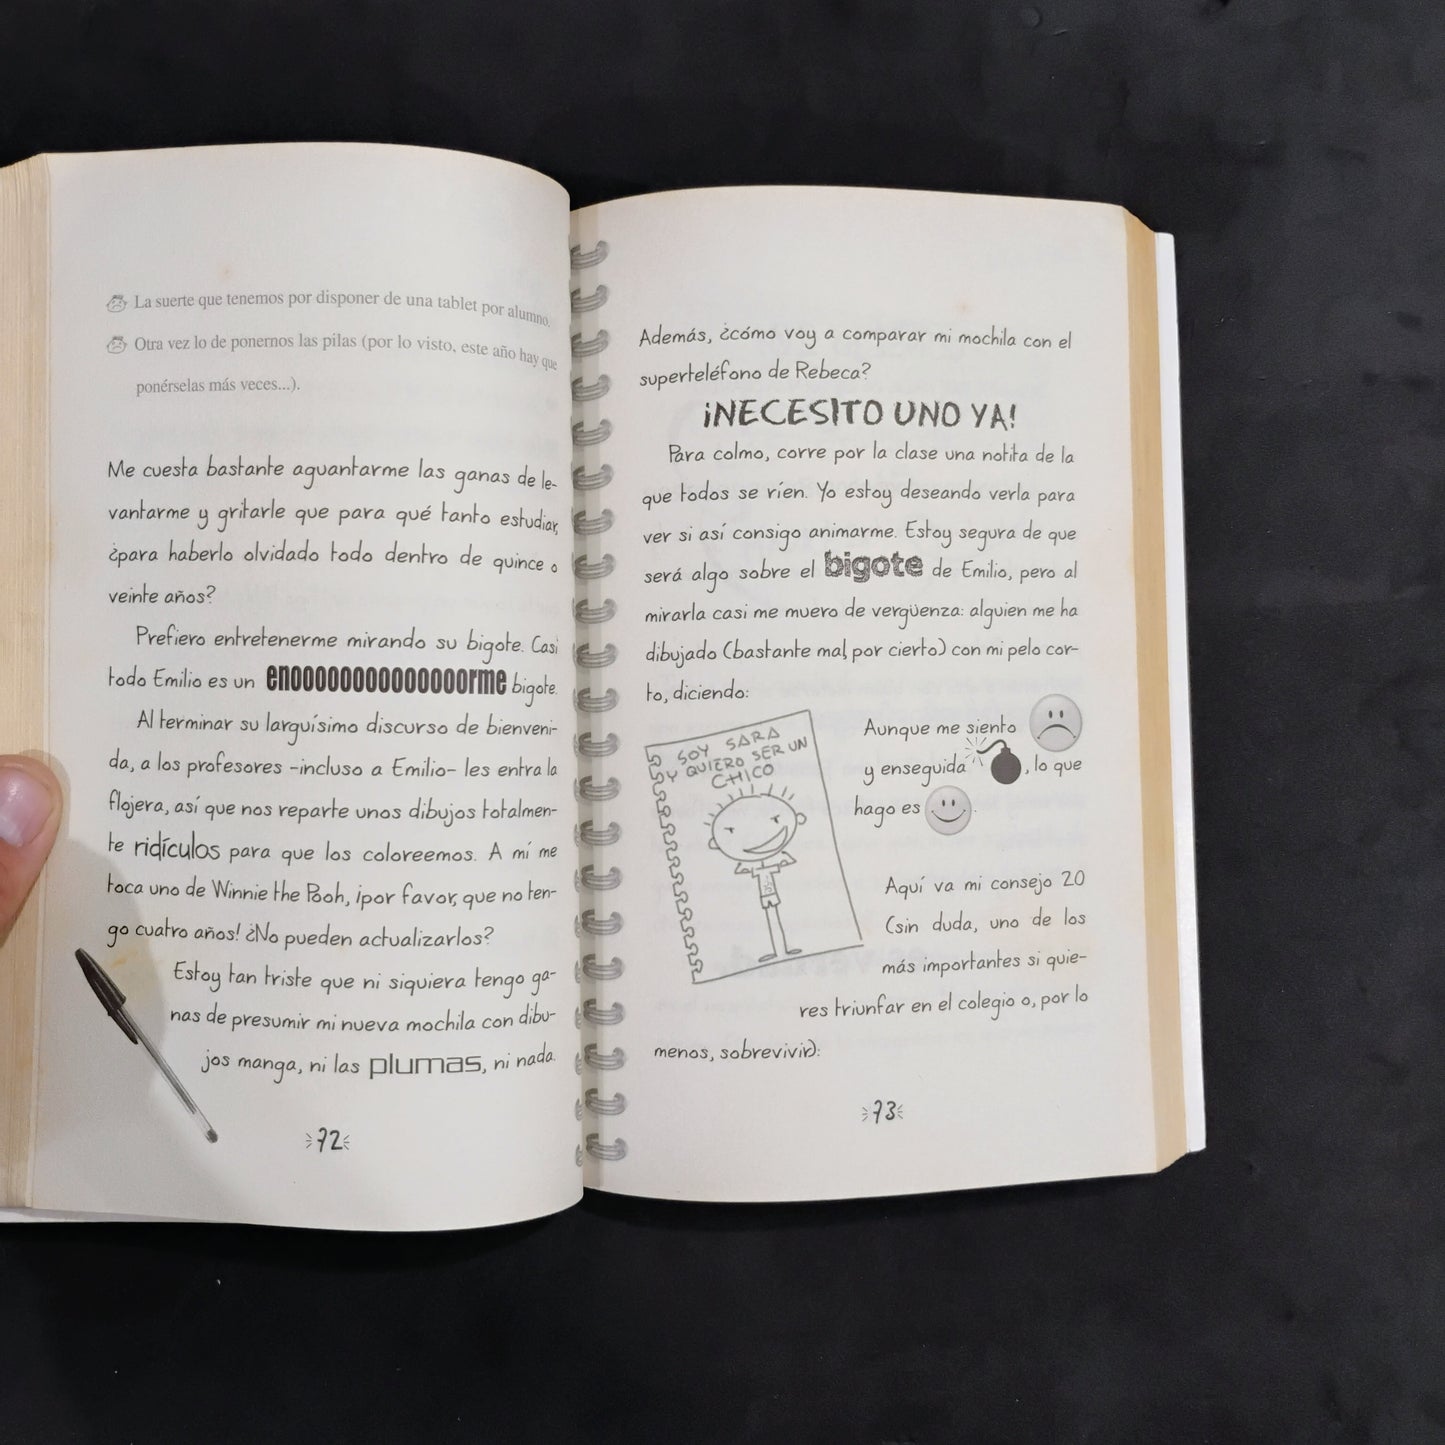 La suerte que tenemos por disponer de una tablet por alumno.
Otra vez lo de ponernos las pilas (por lo visto, este año hay que
ponérselas más veces...).
Me cuesta bastante aguantarme las ganas de le-
vantarme y gritarle que para qué tanto estudiar,
¿para haberlo olvidado todo dentro de quince o
veinte años?
Prefiero entretenerme mirando su bigote. Casi
todo Emilio es un enooooooooooooooorme bigote.
Al terminar su larguísimo discurso de bienveni-
da, a los profesores –incluso a Emilio– les entra la
flojera, así que nos reparte unos dibujos totalmen-
te ridículos para que los coloreemos. A mí me
toca uno de Winnie the Pooh, ¡por favor, que no ten-
go cuatro años! ¿No pueden actualizarlos?
Estoy tan triste que ni siquiera tengo ga-
nas de presumir mi nueva mochila con dibu-
jos manga, ni las plumas, ni nada.
72
Además, ¿cómo voy a comparar mi mochila con el
superteléfono de Rebeca?
¡NECESITO UNO YA!
Para colmo, corre por la clase una notita de la
que todos se ríen. Yo estoy deseando verla para
ver si así consigo animarme. Estoy segura de que
será algo sobre el bigote de Emilio, pero al
mirarla casi me muero de vergüenza: alguien me ha
dibujado (bastante mal, por cierto) con mi pelo cor-
to, diciendo:
SOY SARA
Y QUIERO SER UN
CHICO
Aunque me siento
y enseguida , lo que
hago es .
Aquí va mi consejo 20
(sin duda, uno de los
más importantes si quie-
res triunfar en el colegio o, por lo
menos, sobrevivir):
73